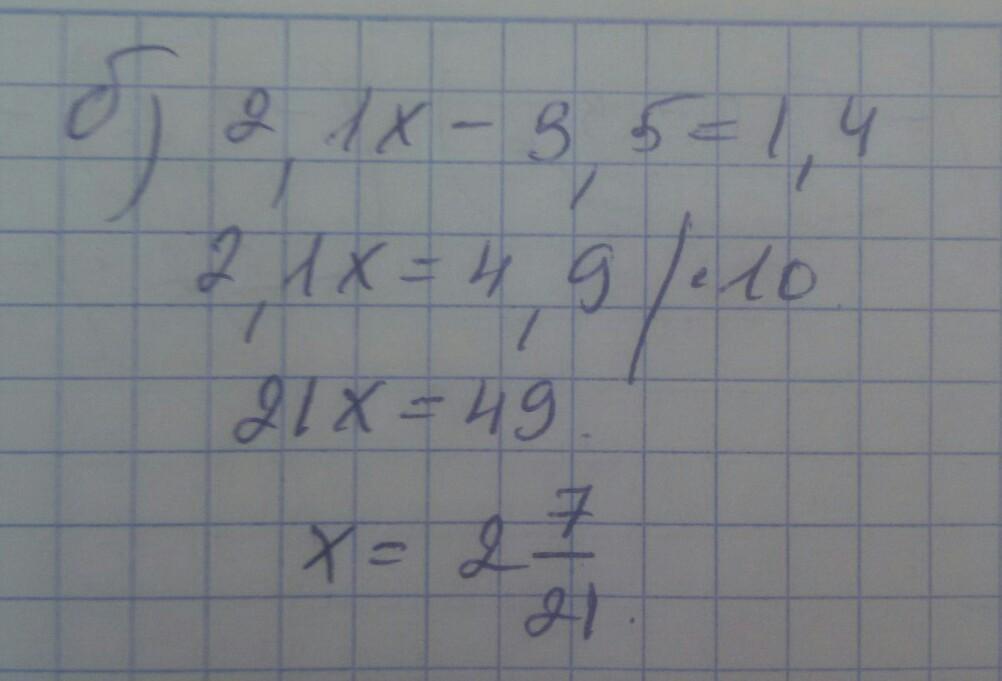 б) 2,1x - 3,5 = 1,4
2,1x = 4,9 / · 10
21x = 49.
x = 2 7/21.